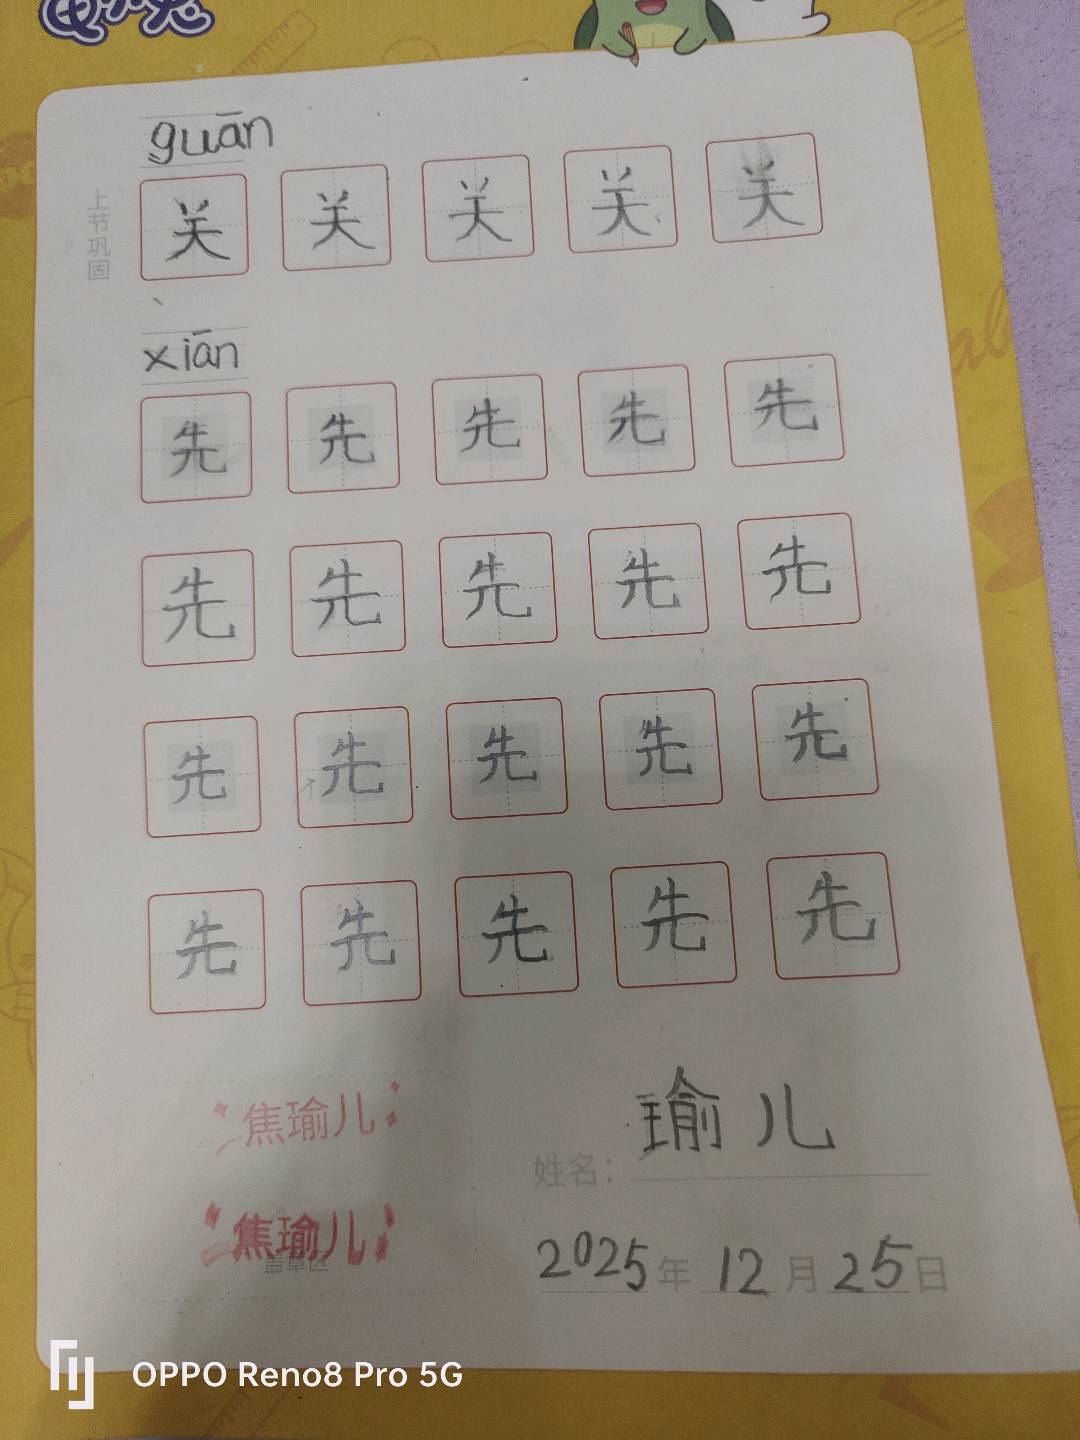 guān
上节巩固
关 关 关 关 关
xiān
先 先 先 先 先
先 先 先 先 先
先 先 先 先 先
先 先 先 先 先
焦瑜儿
瑜儿
姓名：
焦瑜儿
盖章区
2025年 12月 25日
OPPO Reno8 Pro 5G